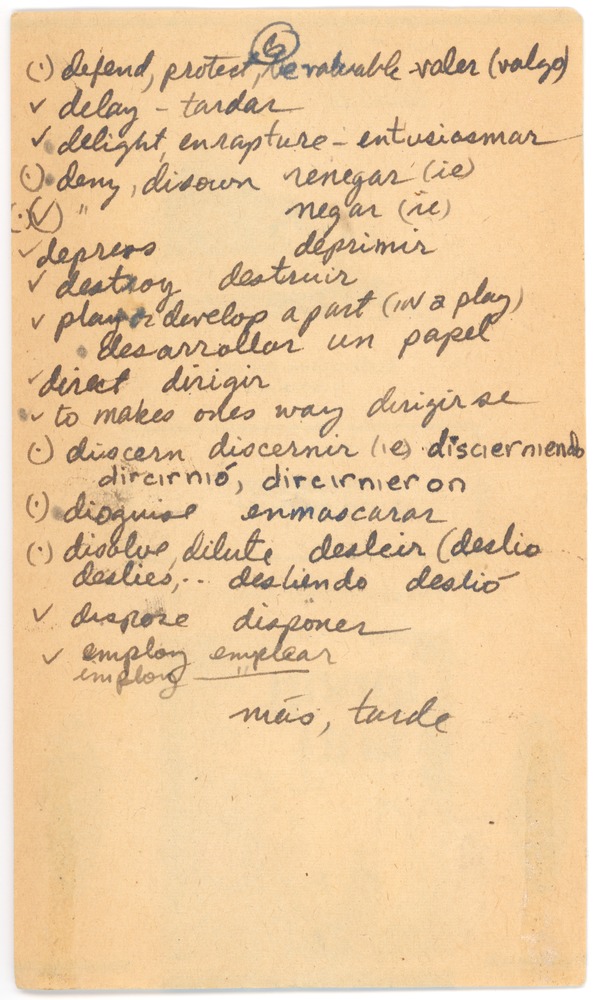 6
(·) defend, protect, be valuable - valer (valgo)
✓ delay - tardar
✓ delight, enrapture - entusiasmar
(·) deny, disown renegar (ie)
(·)(✓) " negar (ie)
✓ depress deprimir
✓ destroy destruir
✓ play or develop a part (in a play)
desarrollar un papel
✓ direct dirigir
✓ to makes ones way dirigirse
(·) discern discernir (ie) discierniendo
dircirnió, dircirnieron
(·) disguise enmascarar
(·) disolve, dilute desleir (deslio
deslies,.. desliendo deslió
✓ dispose disponer
✓ employ emplear
employ "
más, tarde